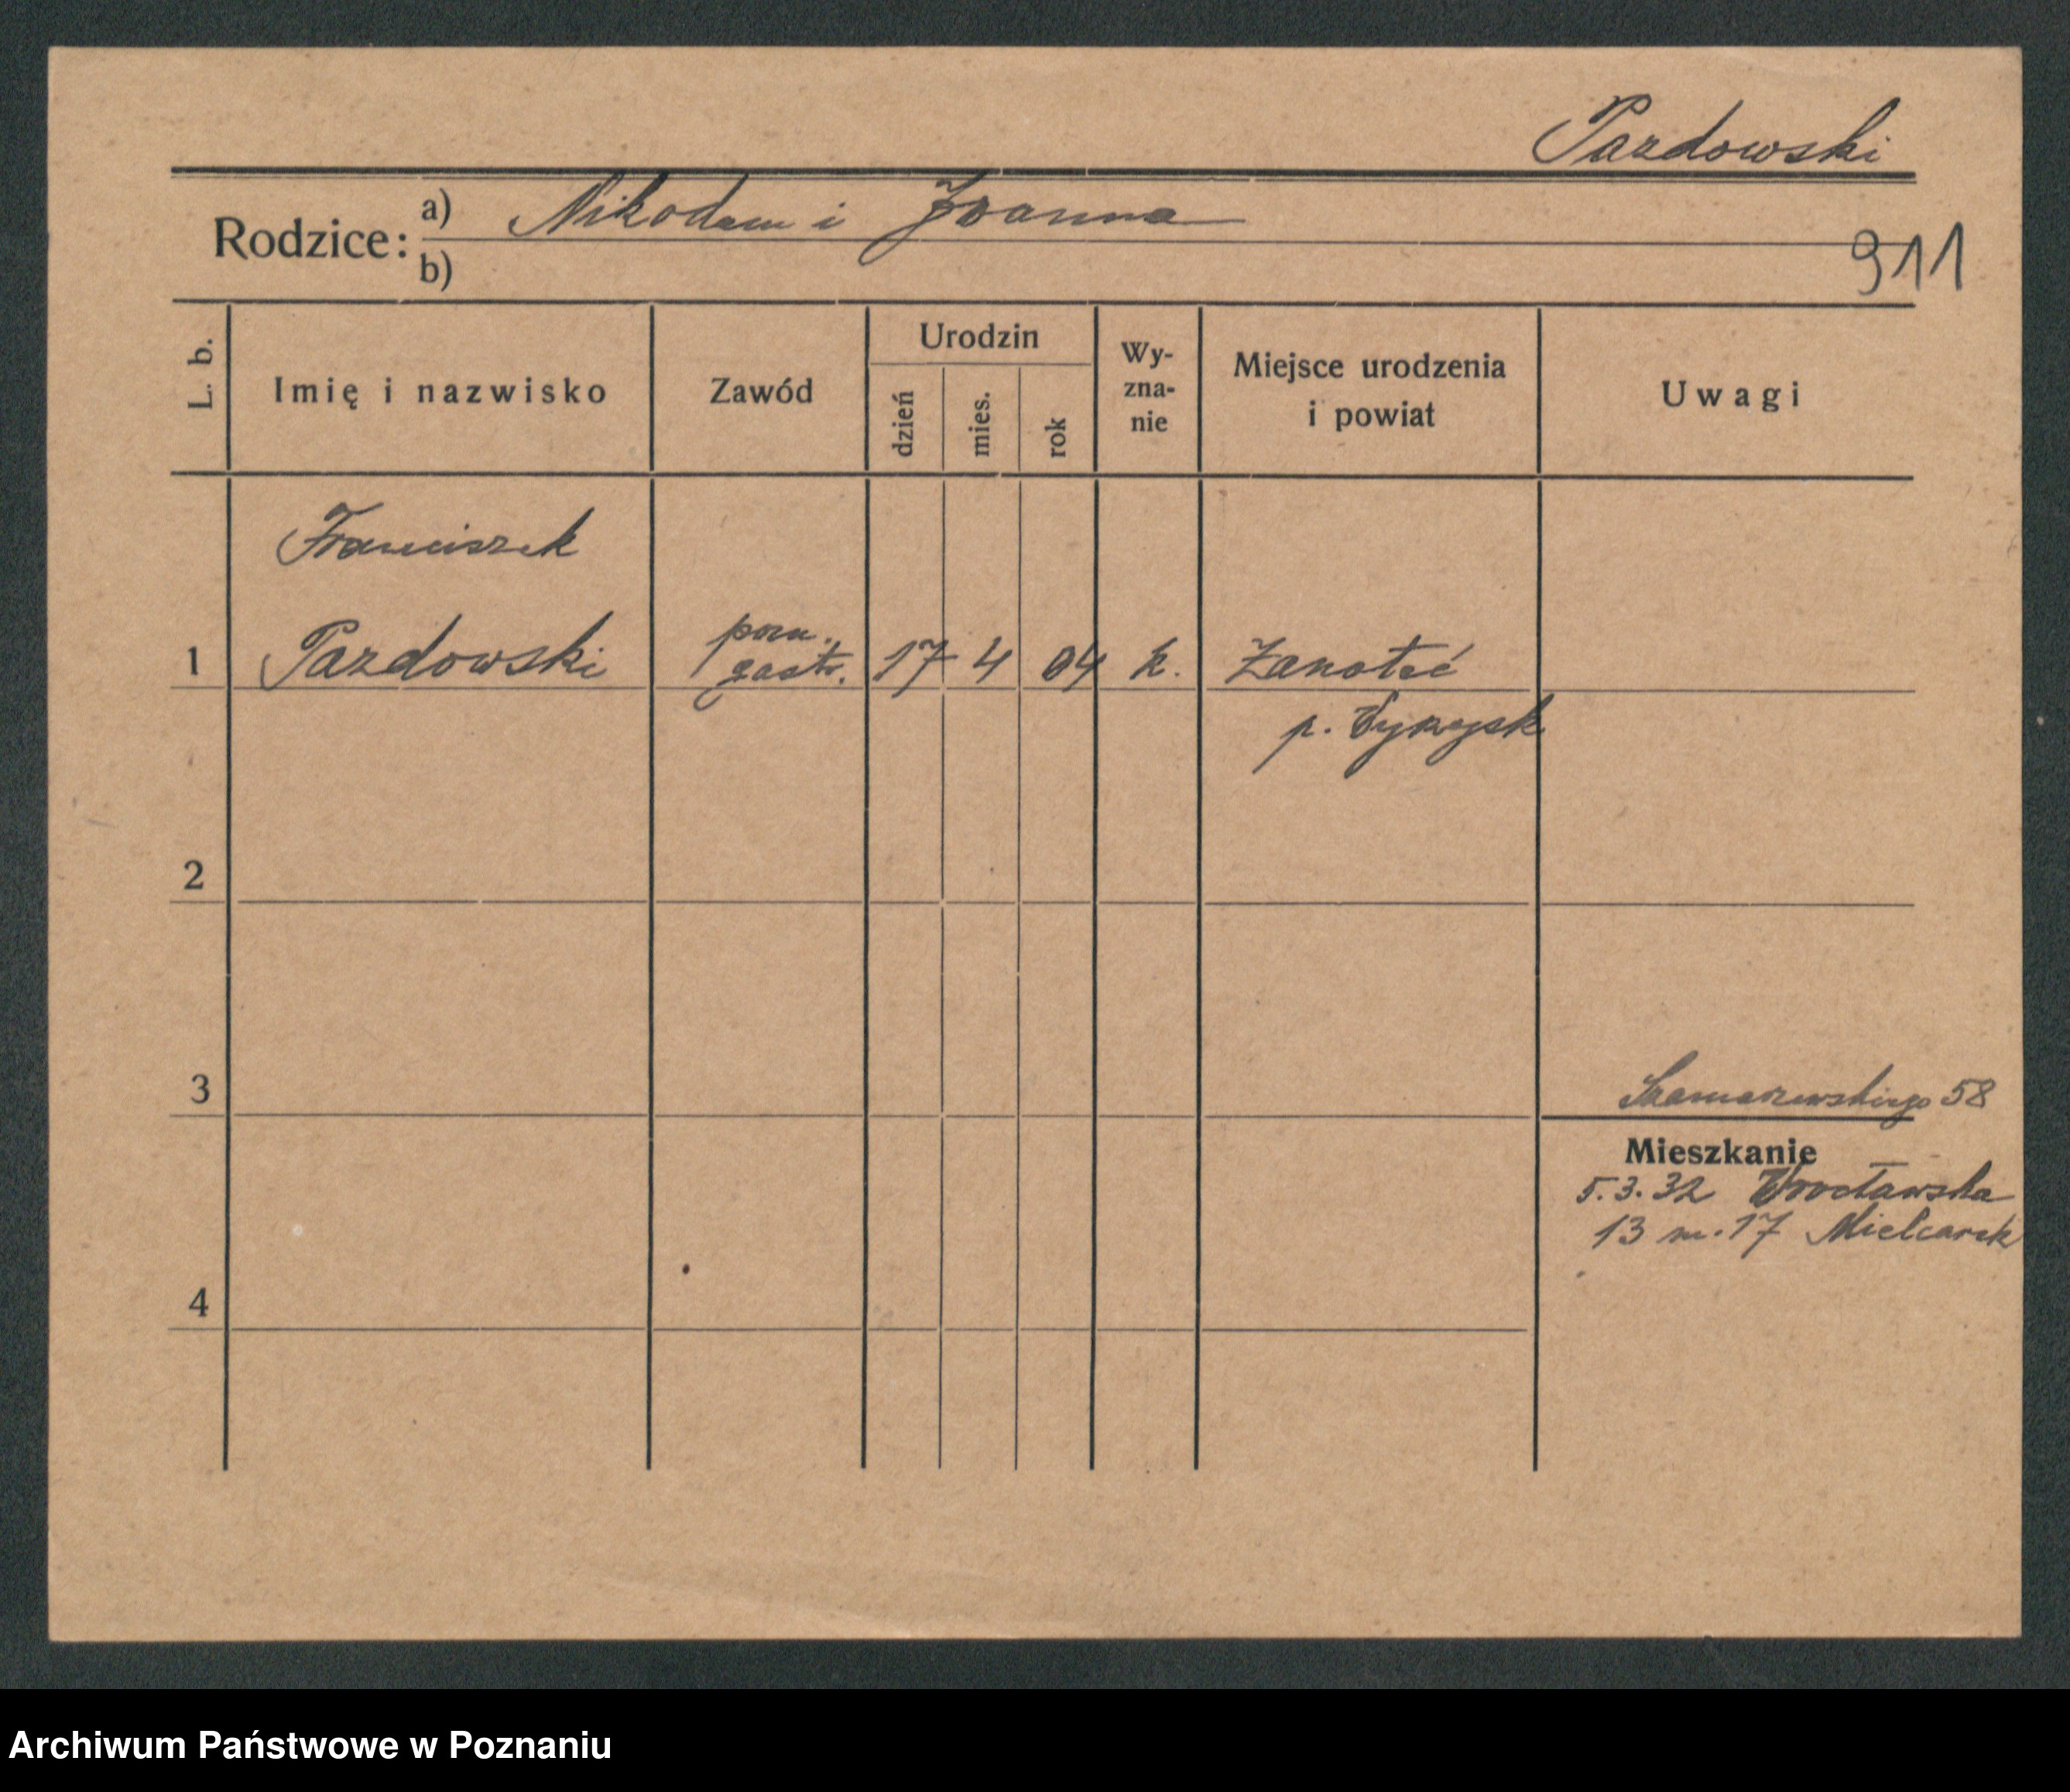 Pazdowski
Rodzice:
a) Nikodem i Joanna
b)
911
L. b.
Imię i nazwisko
Zawód
Urodzin
dzień
mies.
rok
Wy-
zna-
nie
Miejsce urodzenia
i powiat
Uwagi
Franciszek
1 Pazdowski
pom.
gastr.
17 4 04 k.
p. Wyrzysk
2
3
Szamarzewskiego 58
Mieszkanie
5.3.32 Wrocławska
13 m. 17 Mielcarek
4
Archiwum Państwowe w Poznaniu